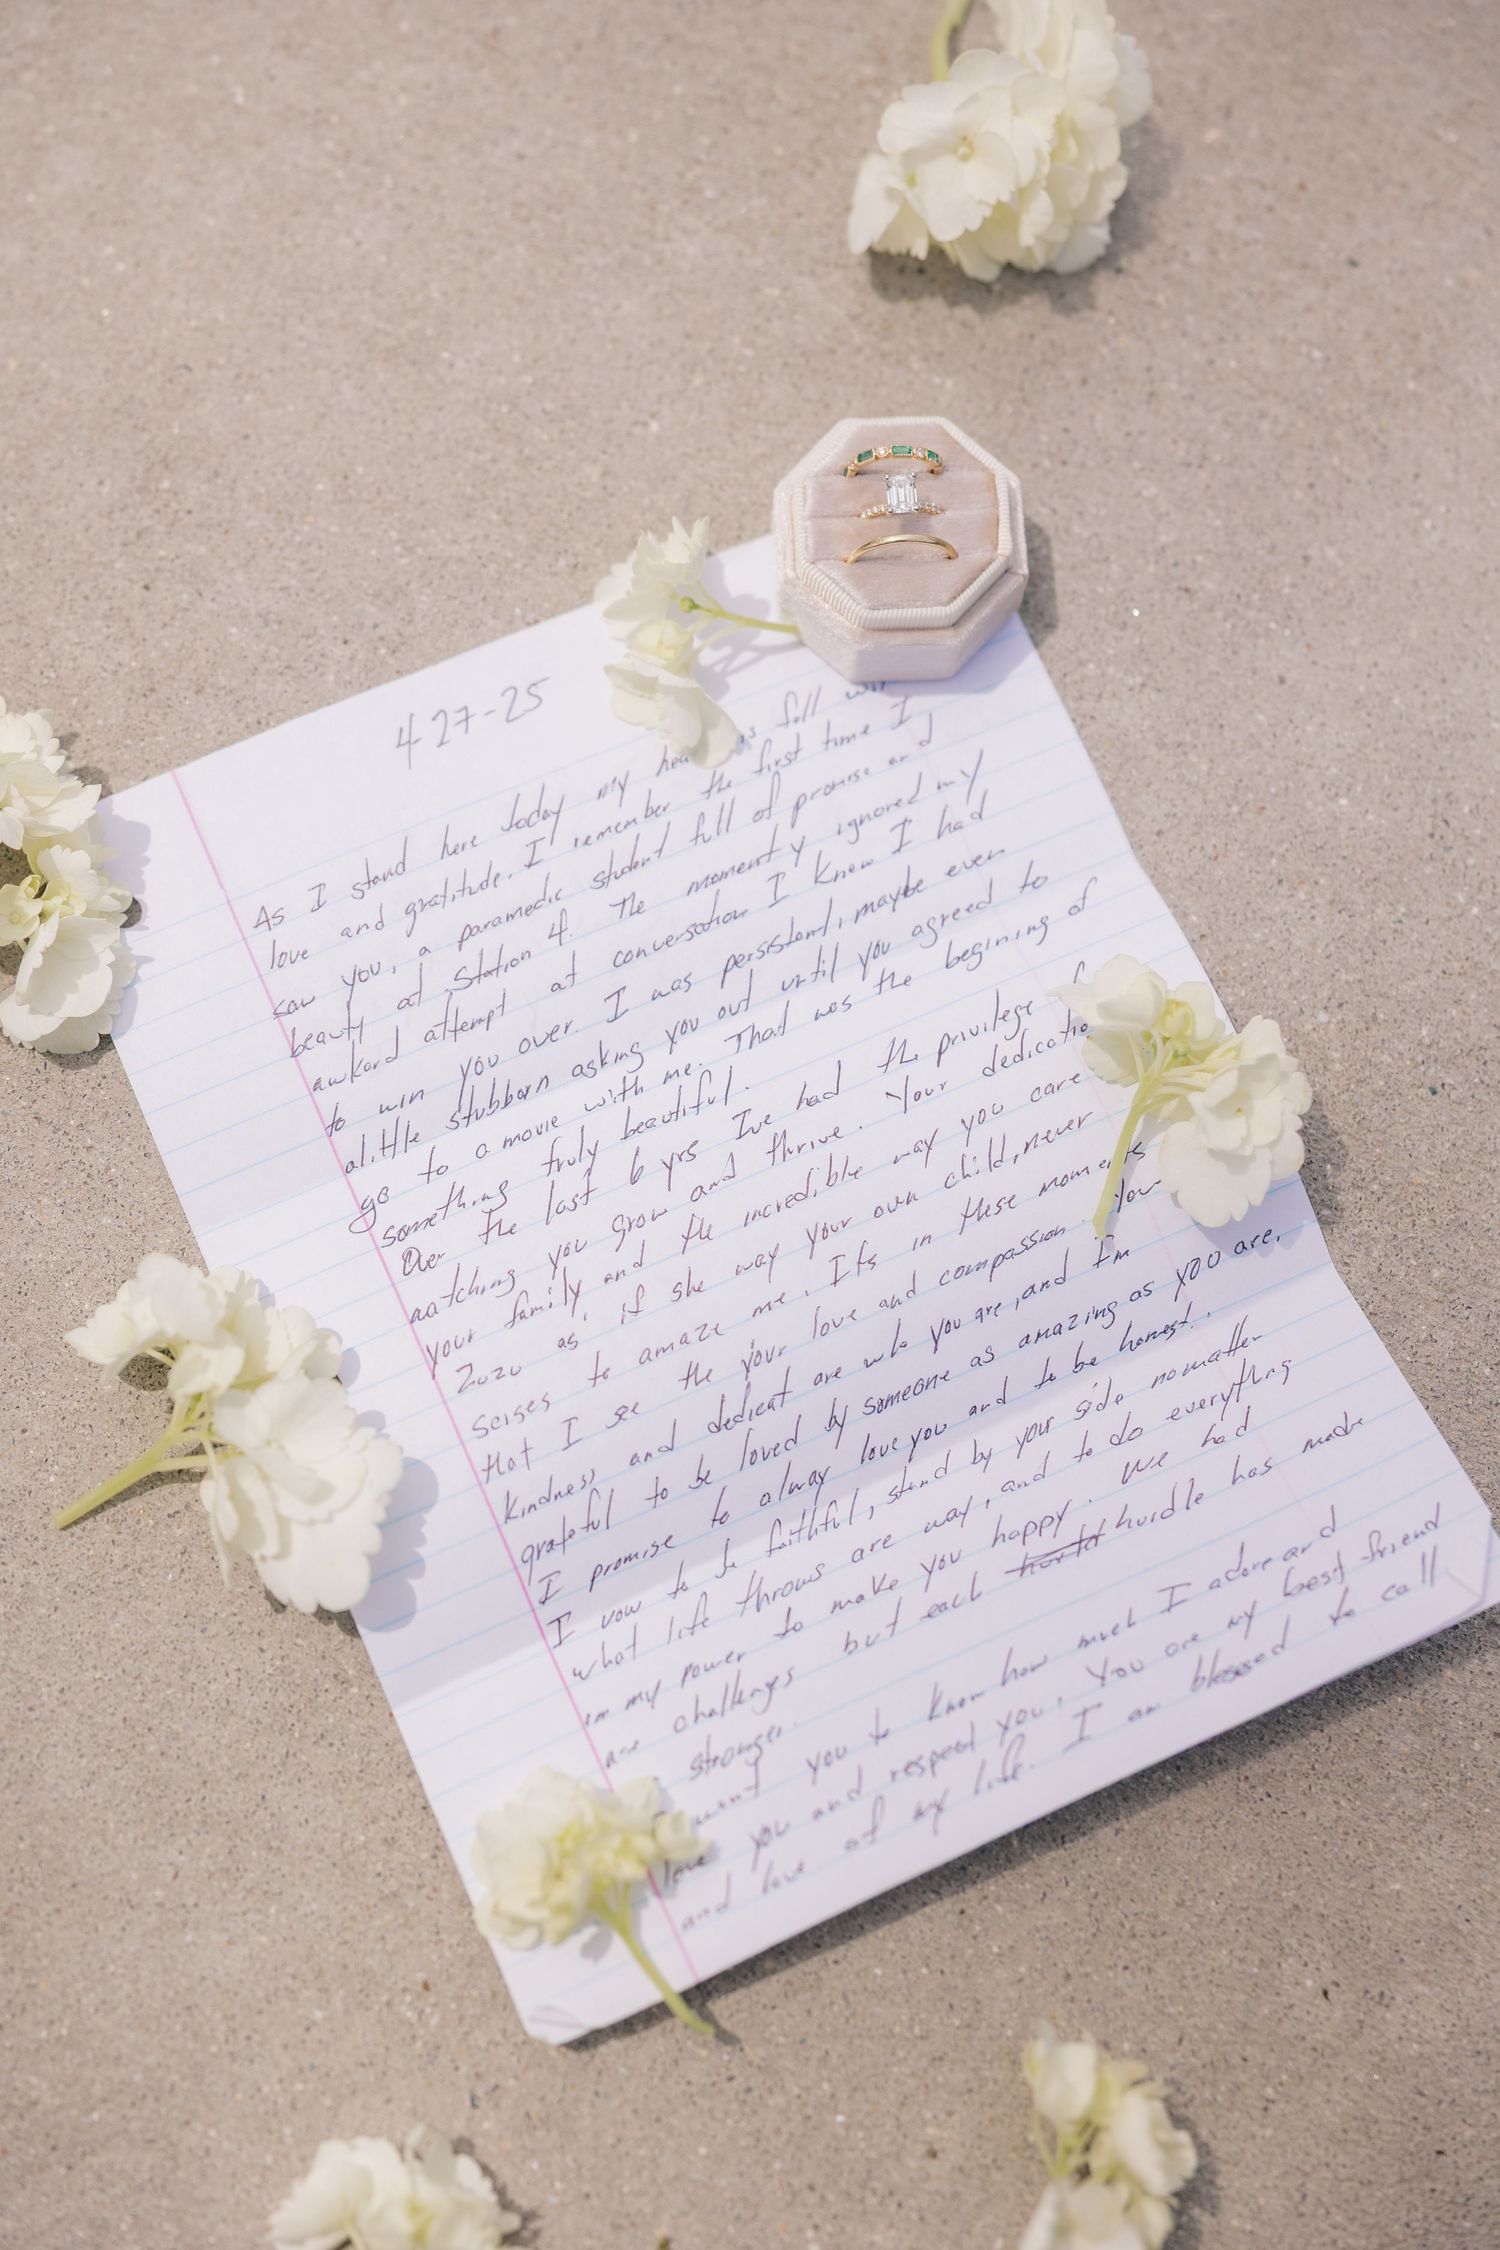 4 27-25
As I stand here today my is full
love and gratitude. I remember the first time I
saw you, a paramedic student full of promise and
beauty at Station 4. The moment y ignored my
awkard attempt at conversation I knew I had
to win you over. I was persistent, maybe even
alittle stubborn asking you out until you agreed to
go to a movie with me. That was the begining of
something truly beautiful.
Over the last 6 yrs Ive had the privilege
watching you grow and thrive. Your
your family and the incredible way you care
Zuzu as if she way your own child, never
seises to amaze me. Its in these moments
that I see the your love and compassion. Your
kindness and dedicat are who you are, and I'm
grateful to be loved by someone as amazing as you are.
I promise to alway love you and to be honest.
I vow to be faithful, stand by your side nomatter
what life throws are way, and to do everything
in my power to make you happy. We had
are challenges but each hurdle has made
stronger.
want you to know how much I adore and
love you and respect you, you are my best friend
and love of my life. I am blessed to call